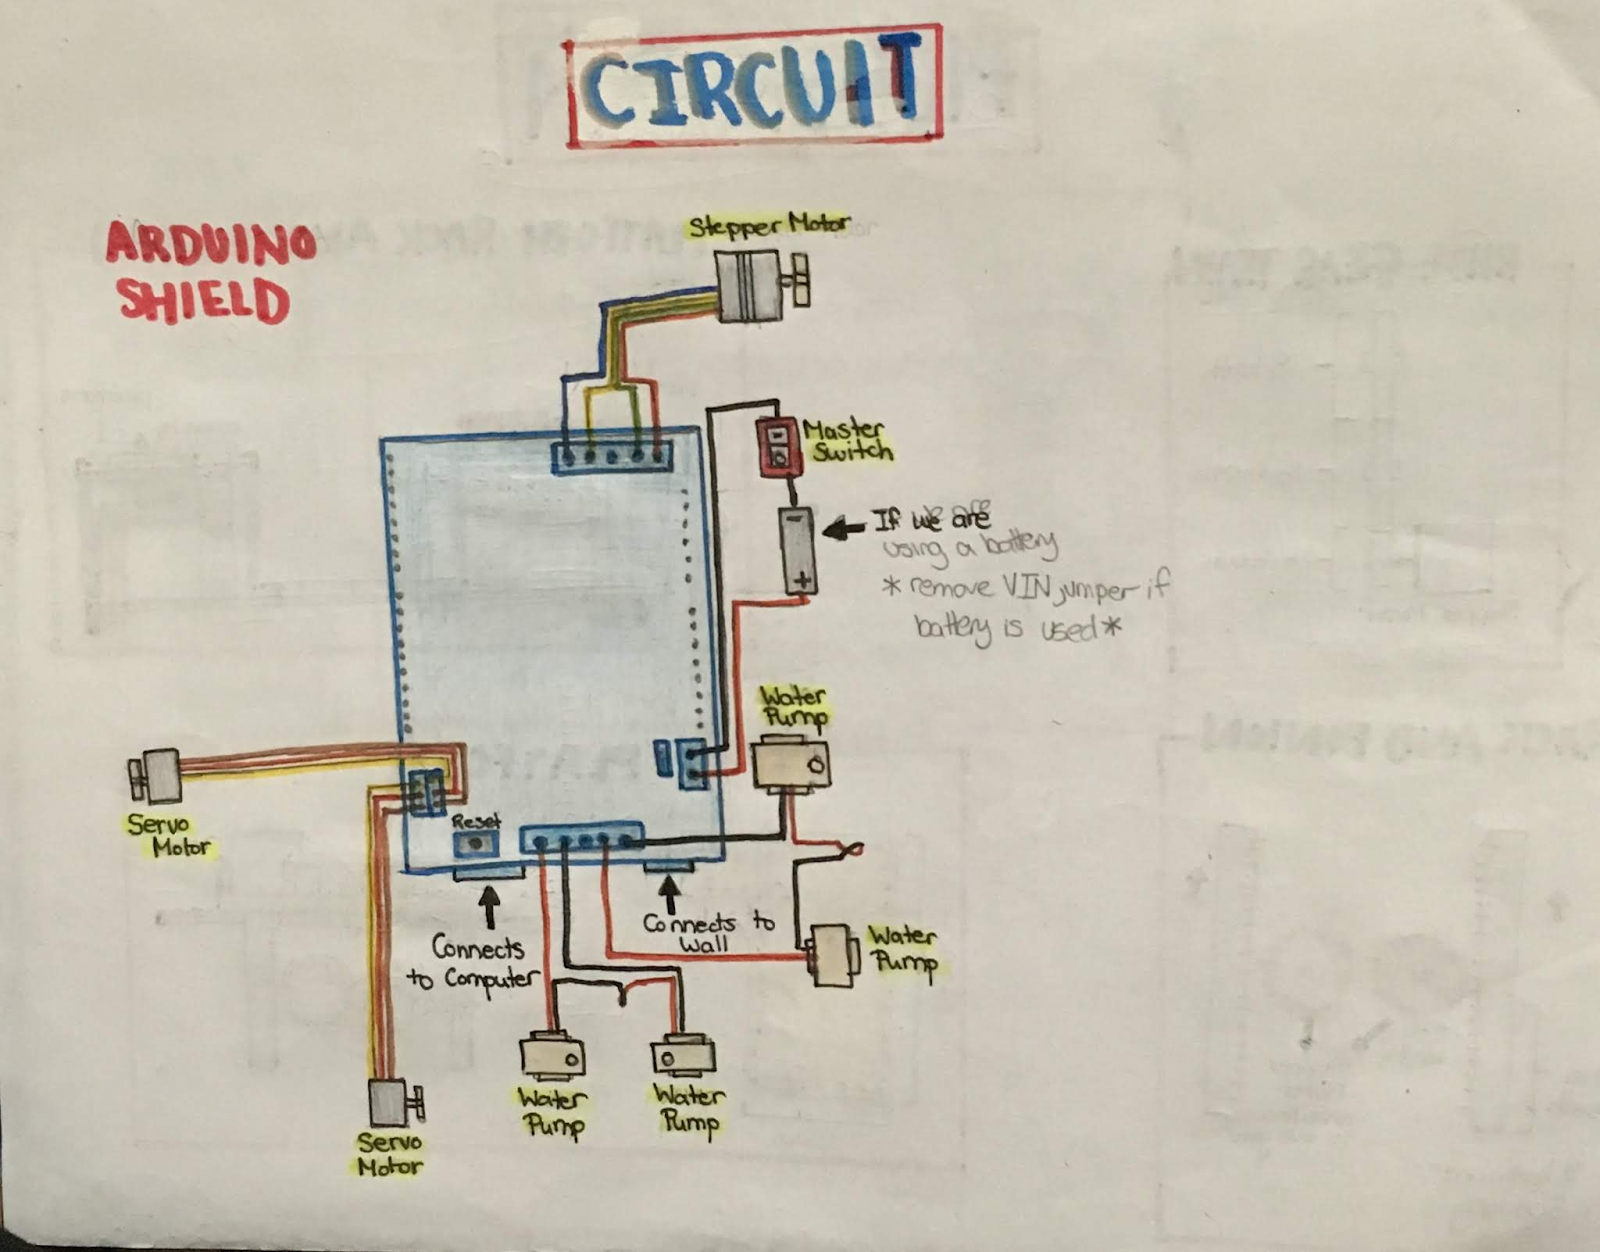 CIRCUIT
ARDUINO
SHIELD
Stepper Motor
Master
Switch
If we are
using a battery
* remove VIN jumper if
battery is used *
Water
Pump
Servo
Motor
Reset
Connects
to Computer
Connects to
Wall
Water
Pump
Water
Pump
Water
Pump
Servo
Motor